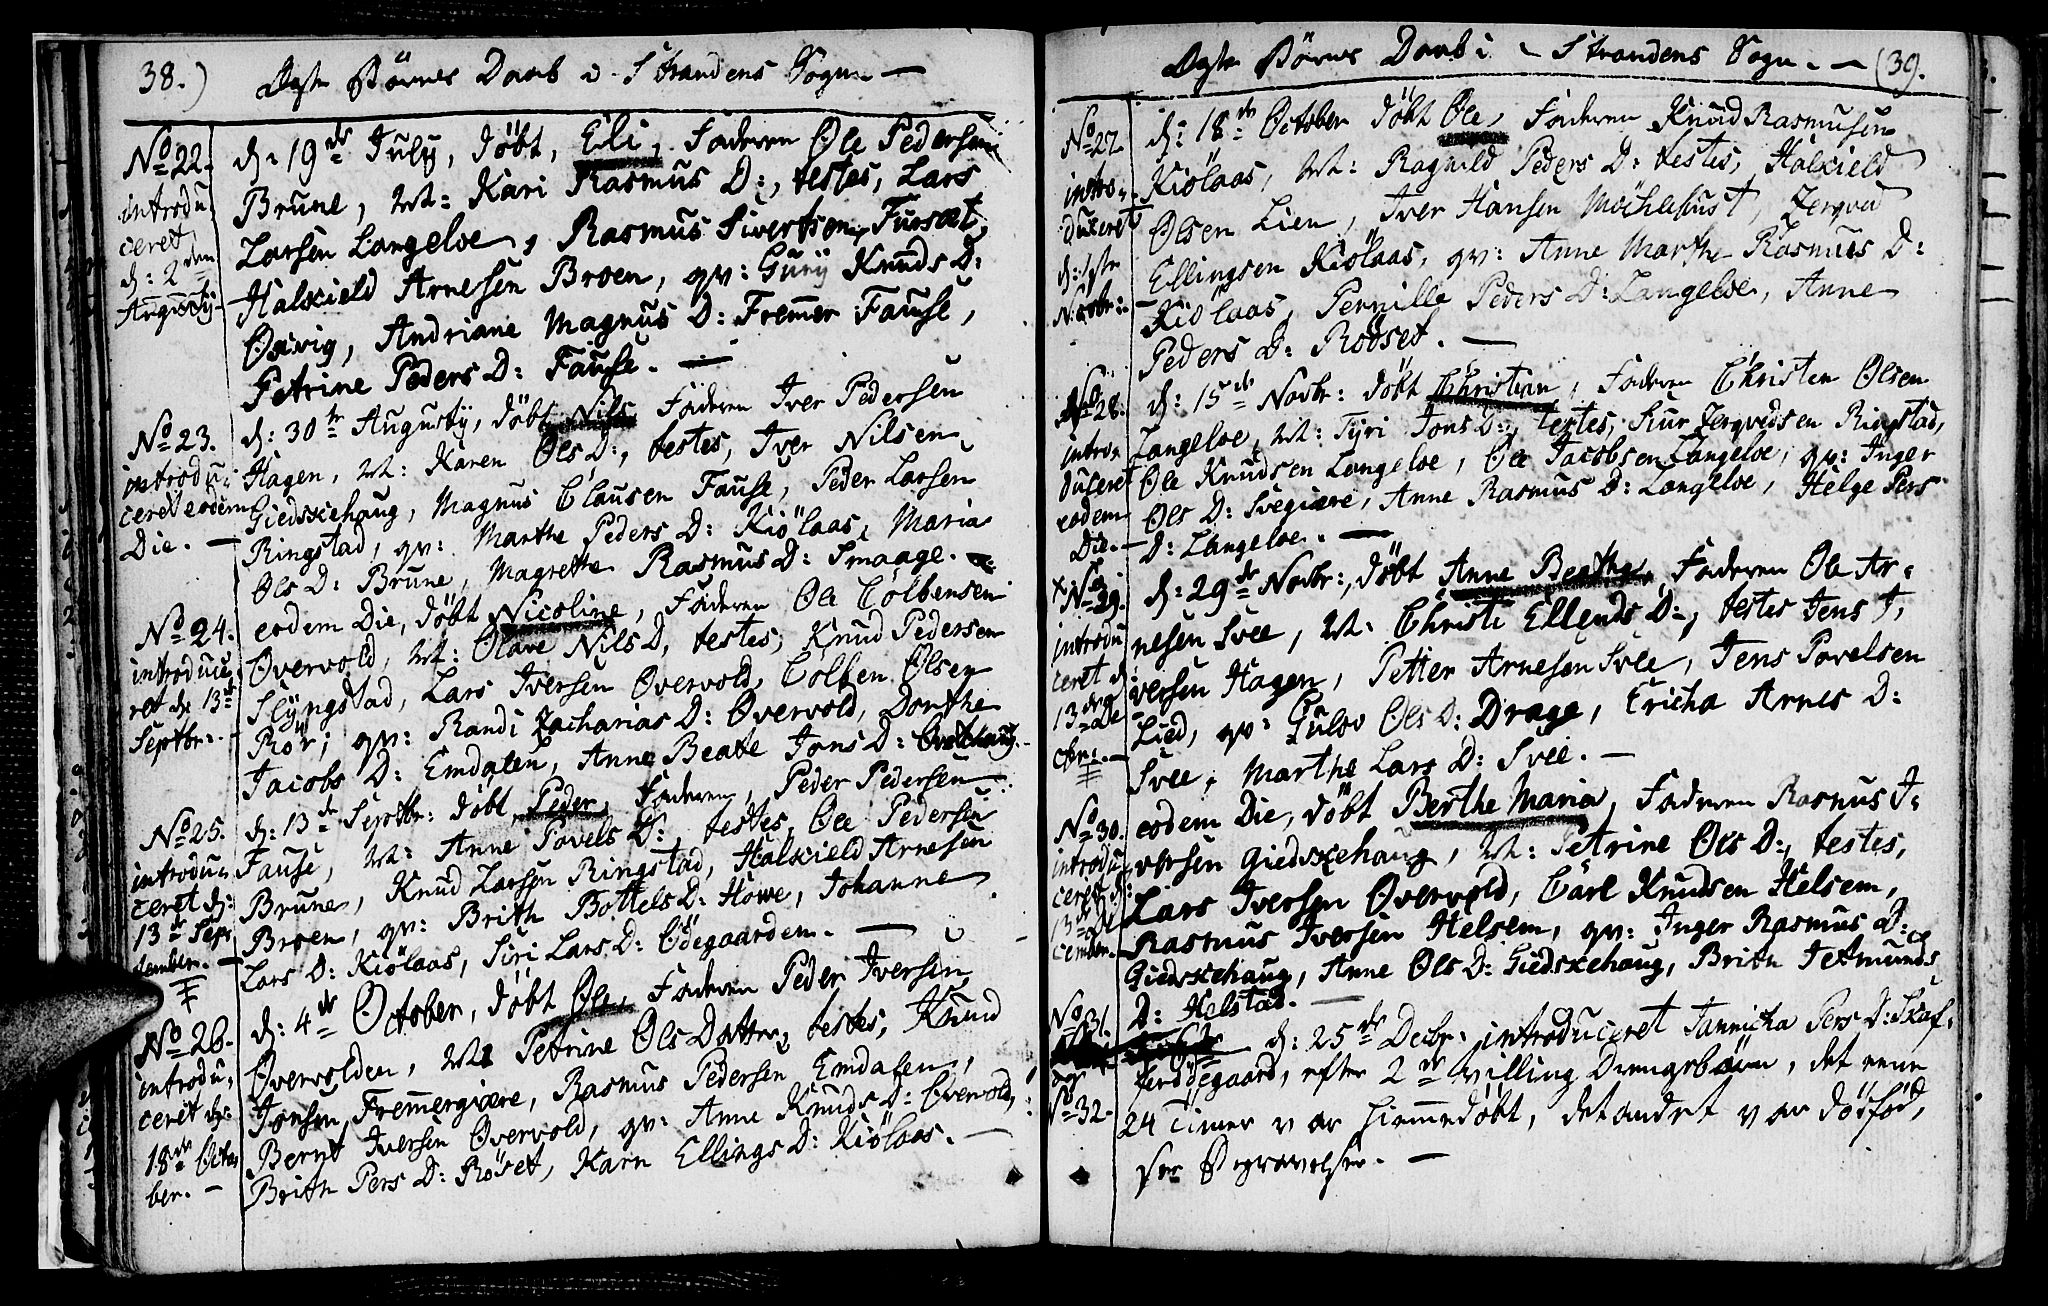 38.) Ægte Börnes Daab i Strandens Sogn —
No 22. introduceret d: 2den Augusty.
d: 19de July, döbt, Eli, Faderen Ole Pedersen
Brune, M: Kari Rasmus D:, testes, Lars
Larsen Langeloe, Rasmus Sivertsen Furset,
Halkield Arnesen Broen, qv: Gurij Knuds D:
Öxvig, Andriane Magnus D: Fremmer Fause,
Petrine Peders D: Fause. —
No 23. introduceret eodem Die. —
d: 30te Augusty, döbt Nils Faderen Iver Pedersen
Hagen, M: Karen Ols D:, testes, Iver Nilsen
Giedskehaug, Magnus Clausen Fause, Peder Larsen
Ringstad, qv: Marthe Peders D: Kiölaas, Maria
Ols D: Brune, Magrethe Rasmus D: Smaage. —
No 24. introduceret d: 13de Septbr: —
eodem Die, döbt Nicoline, Faderen Ole Colbensen
Overvold, M: Olave Nils D, testes, Knud Pedersen
Slyngstad, Lars Iversen Overvold, Colben Olsen
Rör, qv: Randi Zacharias D: Overvold, Dorthe
Jacobs D: Emdalen, Anne Beate Jons D:
No 25. introduceret d: 13de September. —
d: 13de Septbr: döbt Peder, Faderen, Peder Pedersen
Fause, M: Anne Povels D:, testes, Ole Pedersen
Brune, Knud Larsen Ringstad, Halkield Arnesen
Broen, qv: Brith Bottels D: Howe, Johanne
Lars D: Kiölaas, Siri Lars D: Ödegaarden. —
No 26. introduceret d: 18de October. —
d: 4de October, döbt Ole, Faderen Peder Iversen
Overvolden, M: Petrine Ols Datter, testes, Knud
Jonsen Fremmergiære, Rasmus Pedersen Emdalen,
Bernt Iversen Overvold, qv: Anne Knuds D: Overvold,
Brith Pers D: Röset, Karn Ellings D: Kiölaas. —
Ægte Börnes Daab i Strandens Sogn. — (39.
No 27 introduceret d: 1ste Novbr: —
d: 18de October döbt Ole, Faderen Knud Rasmusen
Kiölaas, M: Ragnild Peders D: testes, Halkield
Olsen Lien, Iver Hansen Möchlehust, Zergved
Ellingsen Kiölaas, qv: Anne Marthe Rasmues D:
Kiölaas, Pernille Peders D: Langeloe, Anne
Peders D: Roöset. —
No 28. introduseret eodem Die. —
d: 15de Novbr: döbt Christian, Faderen Christen Olsen
Langeloe, M: Tyri Jons D:, testes, Siur Zergvedsen Ringstad,
Ole Knudsen Langeloe, Ole Jacobsen Langeloe, qv: Inger
Ols D: Svegiære, Anne Rasmus D: Langeloe, Helge Pers
D: Langeloe. —
x No 29. introduceret d: 13de Decbr: —
d: 29de Novbr:, döbt Anne Berthe, Faderen Ole Ar-
nesen Svee, M: Christi Ellends D:, testes Jens I-
versen Hagen, Petter Arnesen Svee, Jens Povelsen
Lied, qv: Gulov Ols D: Drage, Ericha Arnes D:
Svee, Marthe Lars D: Svee. —
No 30. introduceret d: 13de December. —
eodem Die, döbt Berthe Maria, Faderen Rasmus I-
versen Giedskehaug, M: Petrine Ols D:, testes,
Lars Iversen Overvold, Carl Knudsen Helsem,
Rasmus Iversen Helsem, qv: Inger Rasmus D:
Giedskehaug, Anne Ols D: Giedskehaug, Brith Tetmunds
D: Helstad. —
No 31. og No 32.
d: 25de Decbr: introduceret Jannicha Pers D: Skaf-
ferödegaard, efter 2de Tvilling Drengebörn, det eene
24 Timer var hiemmedöbt, det andet var dödföd,
ser Begravelser. —